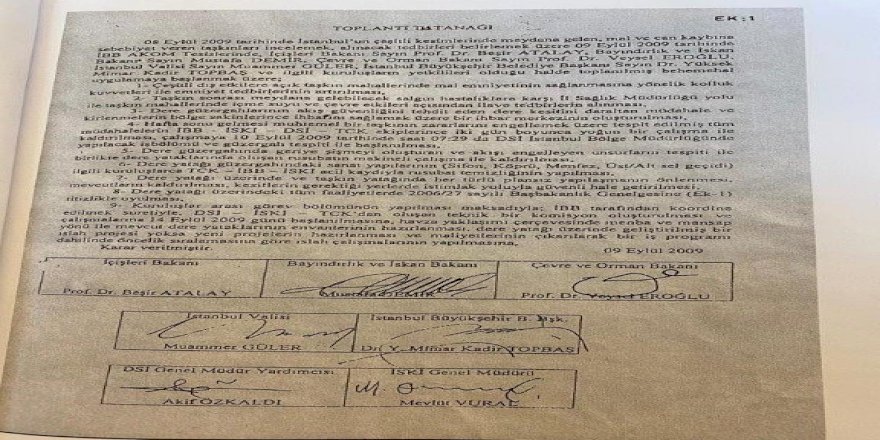 EK:1
TOPLANTI TUTANAĞI
08 Eylül 2009 tarihinde İstanbul'un çeşitli kesimlerinde meydana gelen, mal ve can kaybına
sebebiyet veren taşkınları incelemek, alınacak tedbirleri belirlemek üzere 09 Eylül 2009 tarihinde
İBB AKOM Tesislerinde, İçişleri Bakanı Sayın Prof. Dr. Beşir ATALAY, Bayındırlık ve İskan
Bakanı Sayın Mustafa DEMİR, Çevre ve Orman Bakanı Sayın Prof. Dr. Veysel EROĞLU,
İstanbul Valisi Sayın Muammer GÜLER, İstanbul Büyükşehir Belediye Başkanı Sayın Dr. Yüksek
Mimar Kadir TOPBAŞ ve ilgili kuruluşların yetkilileri olduğu halde toplanılmış behemehal
uygulamaya başlanmak üzere;
1- Çeşitli dış etkilere açık taşkın mahallerinde mal emniyetinin sağlanmasına yönelik kolluk
kuvvetleri ile emniyet tedbirlerinin artırılması,
Taşkın sonrası meydana gelebilecek salgın hastalıklara karşı İl Sağlık Müdürlüğü yolu
ile taşkın mahallerinde içme suyu ve çevre etkileri açısından ilave tedbirlerin alınması,
3- Dere güzergahlarının akış güvenliğini tehdit eden kesit daraltan müdahale ve
kirlenmelerin bölge sakinlerince ihbarını sağlamak üzere bir ihbar merkezinin oluşturulması,
4- Hafta sonu gelmesi muhtemel bir taşkının zararlarını engellemek üzere tespit edilmiş tüm
müdahalelerin İBB İSKİ DSİ TCK ekiplerince iki gün boyunca yoğun bir çalışma ile
kaldırılması, çalışmaya 10 Eylül 2009 tarihinde saat 07:29 da DSİ İstanbul Bölge Müdürlüğünde
yapılacak işbölümü ve güzergah tespiti ile başlanılması,
5- Dere güzergahında geriye şişmeyi oluşturan ve akışı engelleyen unsurların tespiti ile
birlikte dere yataklarında oluşan rusubatın makineli çalışma ile kaldırılması,
6- Dere yatağı güzergahındaki sanat yapılarının (Sifon, Köprü, Menfez, Üst/Alt sel geçidi)
ilgili kuruluşlarca TCK – İBB – İSKİ acil kaydıyla rusubat temizliğinin yapılması,
7- Dere yatağı üzerinde ve taşkın yatağında her türlü plansız yapılaşmanın önlenmesi,
mevcutların kaldırılması, kesitlerin gerektiği yerlerde istimlak yoluyla güvenli hale getirilmesi,
8- Dere yatağı üzerindeki tüm faaliyetlerde 2006/27 sayılı Başbakanlık Genelgesine (Ek-1)
titizlikle uyulması,
9- Kuruluşlar arası görev bölümünün yapılması maksadıyla; İBB tarafından koordine
edilmek suretiyle, DSİ İSKİ TCK'dan oluşan teknik bir komisyon oluşturulması ve
çalışmalarına 14 Eylül 2009 günü başlanılmasına, havza yaklaşımı çerçevesinde menba ve mansap
yönü ile mevcut dere yataklarının envanterinin hazırlanması, dere yatağı üzerinde geliştirilmiş bir
ıslah projesi yoksa yeni projelerin hazırlanması ve maliyetlerinin çıkarılarak bir iş programı
dahilinde öncelik sıralamasına göre ıslah çalışmalarının yapılmasına,
Karar verilmiştir.
09 Eylül 2009
İçişleri Bakanı
Bayındırlık ve İskan Bakanı
Çevre ve Orman Bakanı
Prof. Dr. Beşir ATALAY
Mustafa DEMİR
Prof. Dr. Veysel EROĞLU
İstanbul Valisi
İstanbul Büyükşehir B. Bşk.
Muammer GÜLER
Dr. Y. Mimar Kadir TOPBAŞ
DSİ Genel Müdür Yardımcısı
İSKİ Genel Müdürü
Akif ÖZKALDI
Mevlüt VURAL